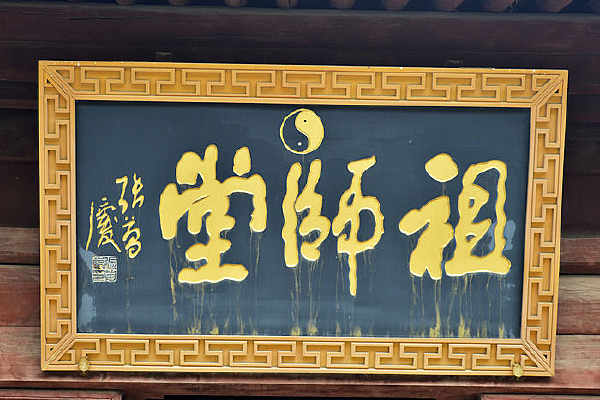 祖師堂
張萬
慶